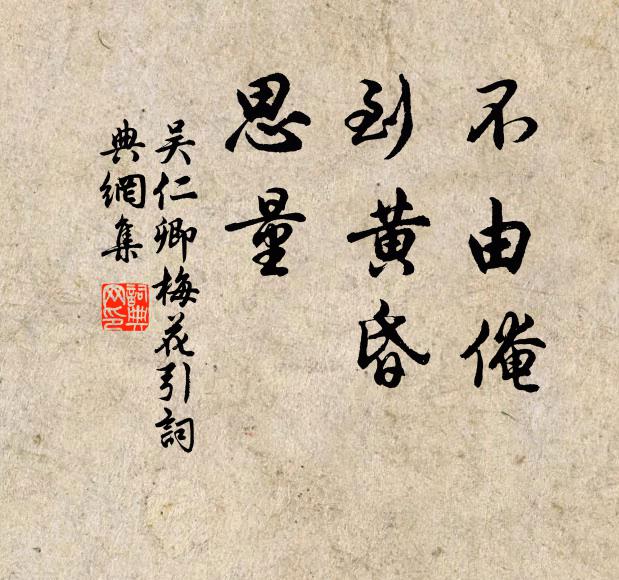 不由俺
到黃昏
思量
吳仁卿梅花引詞
典網集
詞典
网印